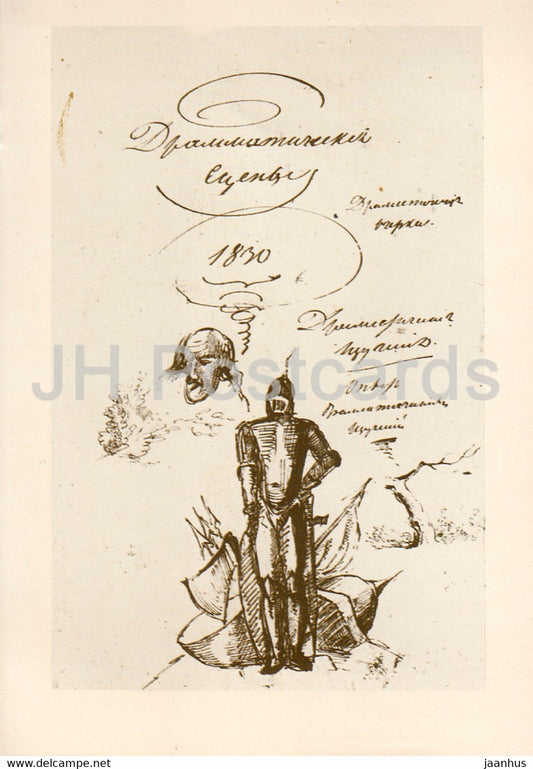 Драмматическія
Сцены
1830
Драматическіе
очерки.
Драматическія
изученія.
Опыт
Драмматических
изучений
JH Postcards
www.delcampe.net
jaanhus